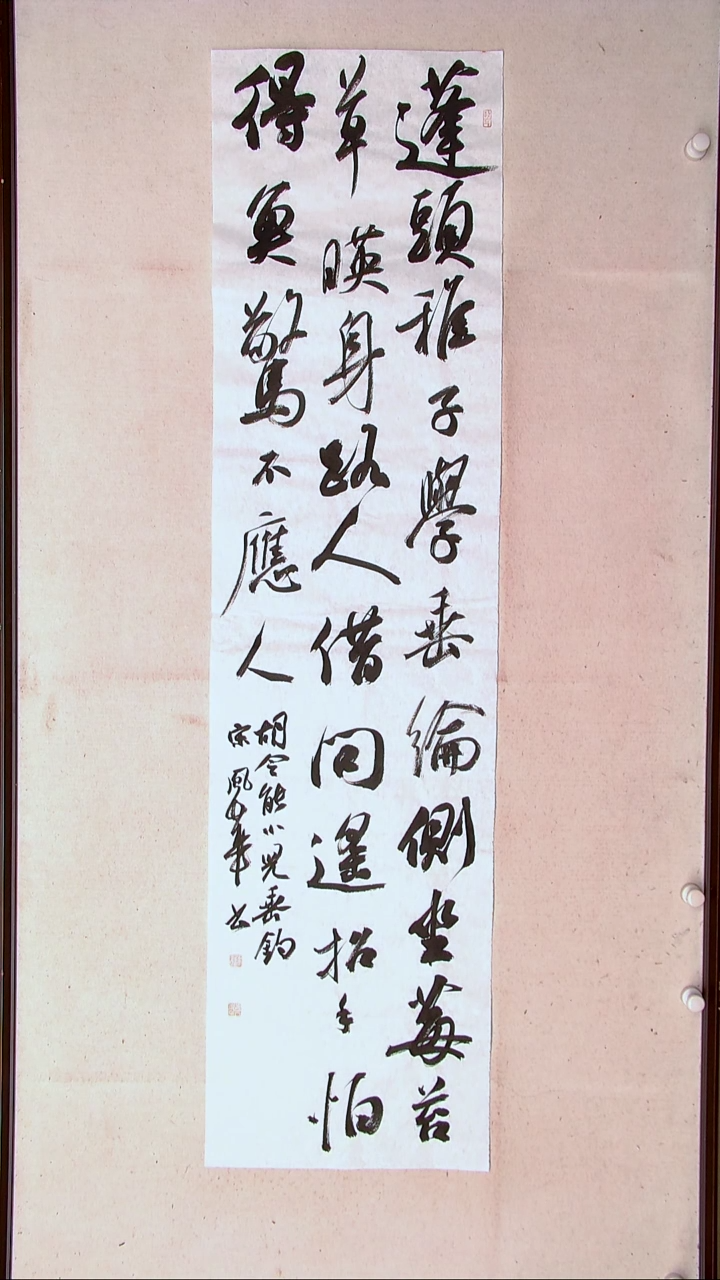 蓬頭稚子學垂綸側坐莓苔
草暎身路人借問遥招手怕
得魚驚不應人
胡令能小兒垂釣
宋 书